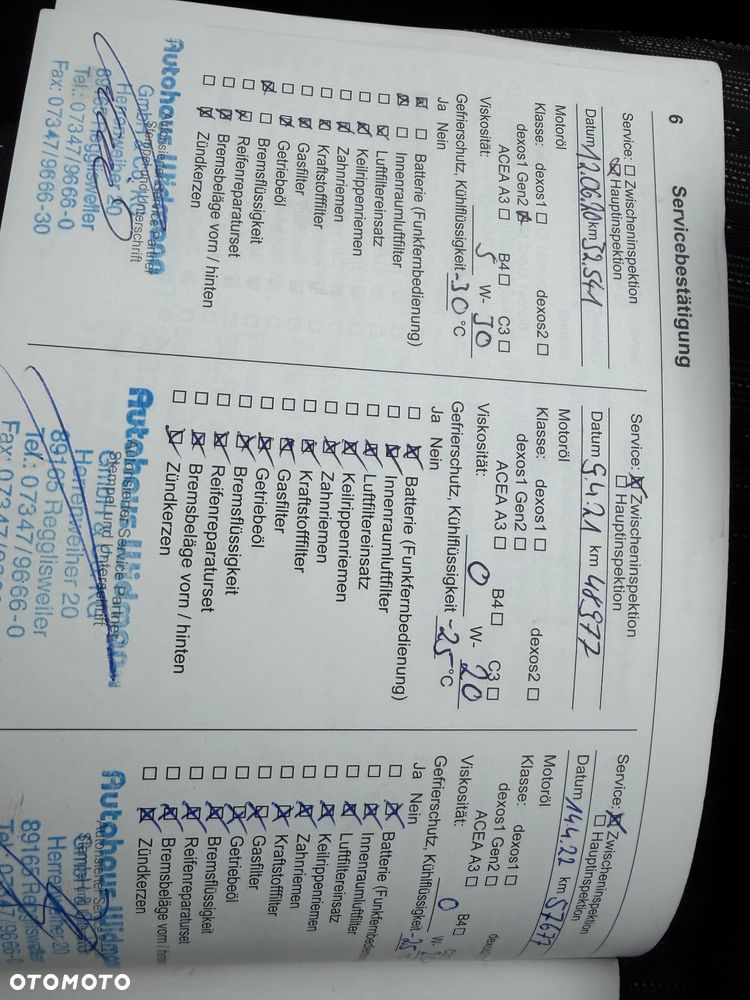 6
Servicebestätigung
Service: Zwischeninspektion
Hauptinspektion
Datum 17.06.20 km 32.541
Motoröl
Klasse: dexos1 dexos2
dexos1 Gen2
ACEA A3 B4 C3
Viskosität: 5 W- 30
Gefrierschutz, Kühlflüssigkeit -30 °C
Ja Nein
Batterie (Funkfernbedienung)
Innenraumluftfilter
Luftfiltereinsatz
Keilrippenriemen
Zahnriemen
Kraftstofffilter
Gasfilter
Getriebeöl
Bremsflüssigkeit
Reifenreparaturset
Bremsbeläge vorn / hinten
Zündkerzen
Stempel und Unterschrift
Autohaus Widmann
GmbH & Co. KG
Herrenweiher 20
89165 Regglisweiler
Tel.: 07347/9666-0
Fax: 07347/9666-30
Service: Zwischeninspektion
Hauptinspektion
Datum 9.4.21 km 48977
Motoröl
Klasse: dexos1 dexos2
dexos1 Gen2
ACEA A3 B4 C3
Viskosität: 0 W- 20
Gefrierschutz, Kühlflüssigkeit -25 °C
Ja Nein
Batterie (Funkfernbedienung)
Innenraumluftfilter
Luftfiltereinsatz
Keilrippenriemen
Zahnriemen
Kraftstofffilter
Gasfilter
Getriebeöl
Bremsflüssigkeit
Reifenreparaturset
Bremsbeläge vorn / hinten
Zündkerzen
Autohaus Widmann
Autorisierter Service Partner
Stempel und Unterschrift
Herrenweiher 20
89165 Regglisweiler
Tel.: 07347/9666-0
Fax: 07347/9666
Service: Zwischeninspektion
Hauptinspektion
Datum 14.4.22 km 57677
Motoröl
Klasse: dexos1 dexos
dexos1 Gen2
ACEA A3 B4
Viskosität: 0 W-
Gefrierschutz, Kühlflüssigkeit
Ja Nein
Batterie (Funkfernbedien
Innenraumluftfilter
Luftfiltereinsatz
Keilrippenriemen
Zahnriemen
Kraftstofffilter
Gasfilter
Getriebeöl
Bremsflüssigkeit
Reifenreparaturset
Bremsbeläge vorn / hint
Zündkerzen
Autohaus Widm
Autorisierter Se
Stempel und
Herrenweiher 20
89165 Regglisweiler
Tel.: 07347/9666-0
OTOMOTO